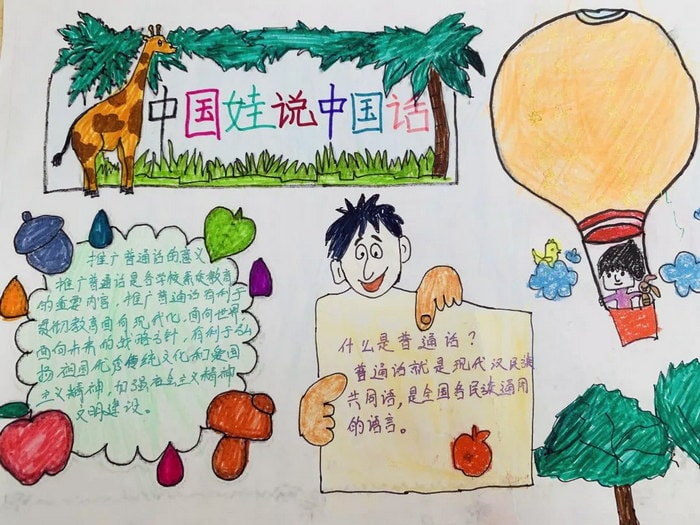 中国娃说中国话
推广普通话的意义
推广普通话是各学校素质教育
的重要内容，推广普通话有利于
贯彻教育面向现代化，面向世界
面向未来的战略方针，有利于弘
扬祖国优秀传统文化和爱国
主义精神，加强社会主义精神
文明建设。
什么是普通话？
普通话就是现代汉民族
共同语，是全国各民族通用
的语言。